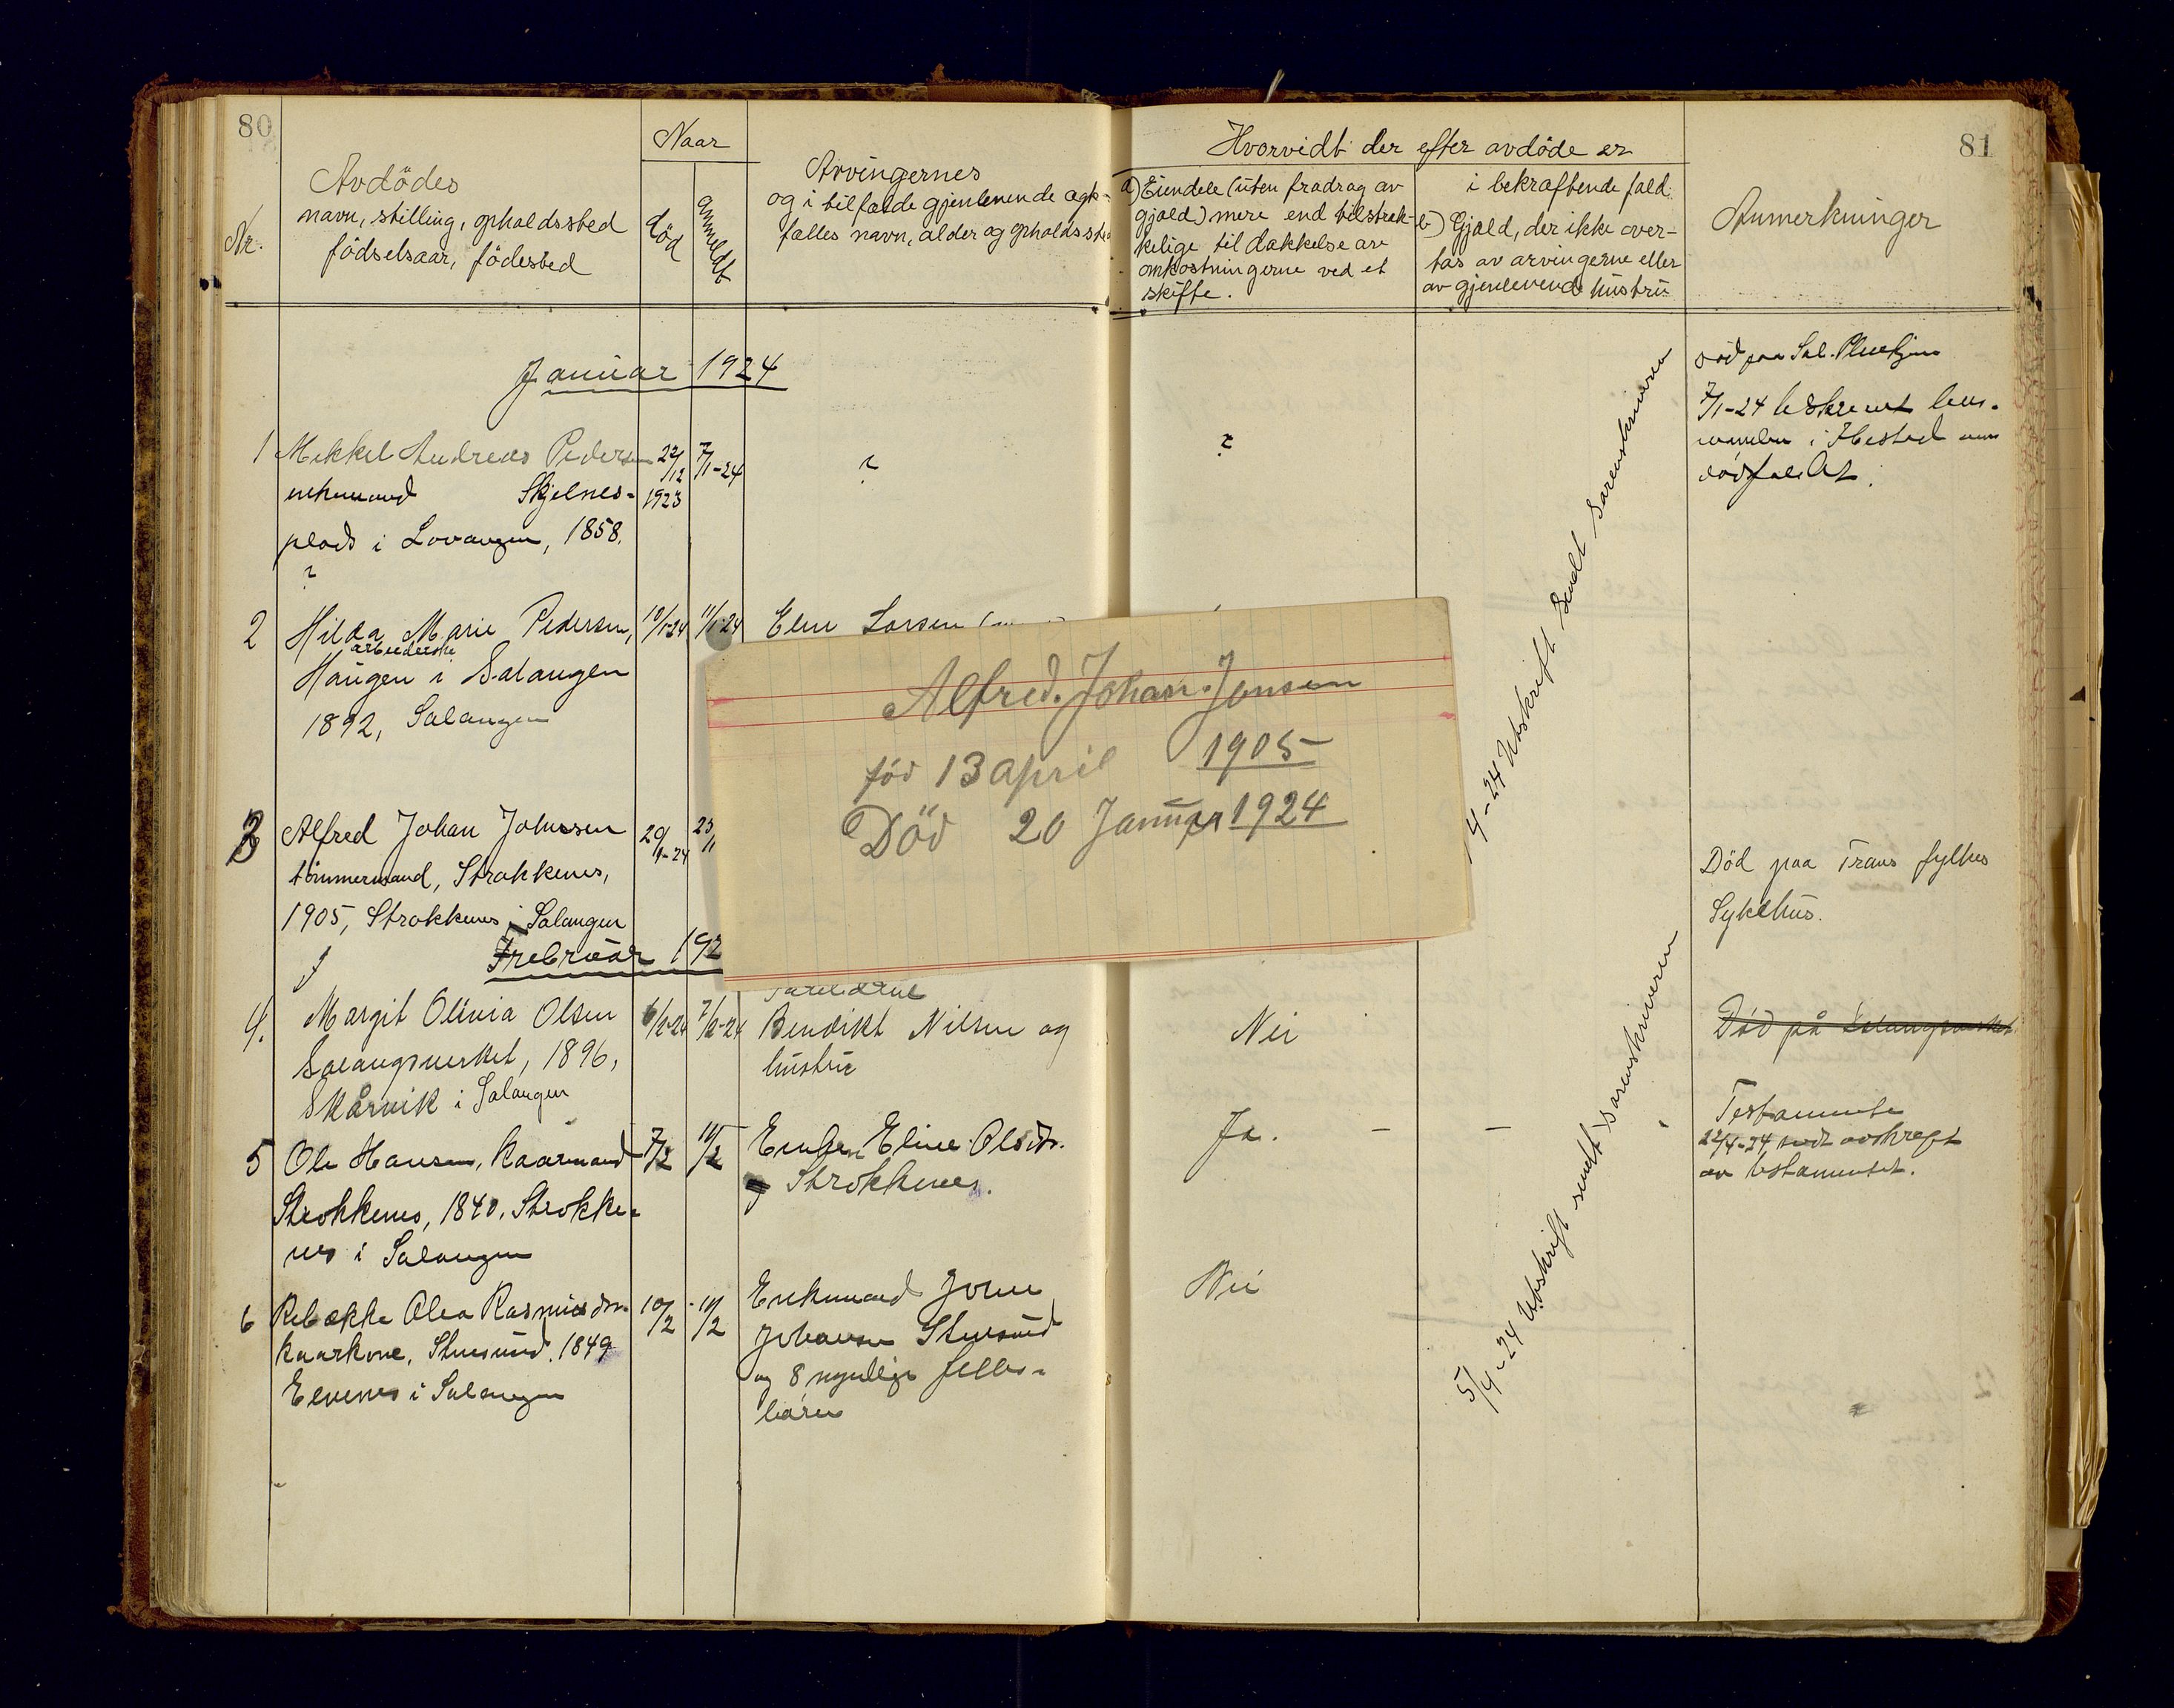 80
Nr.
Avdödes
navn, stilling, opholdssted
födselsaar, födested
Naar
död
anmeldt
Arvingernes
og i tilfælde gjenlevende ægte-
fælles navn, alder og opholdssted
Januar 1924
1 Mikkel Andreas Pedersen 22/12 7/1-24
enkemand Skjelnes- 1923
plads i Lavangen, 1858.
?
?
2 Hilda Marie Pedersen, 10/1-24 11/1-24 Elen Larsen
arbeiderske
Haugen i Salangen
1892, Salangen
3 Alfred Johan Johnsen 20/1-24
tömmermand, Strokkenes,
1905, Strokkenes i Salangen
Februar 192
4. Margit Olivia Olsen 6/2-24 7/2-24 Bendikt Nilsen og
Salangsverket, 1896, hustru
Skårvik i Salangen
5 Ole Hansen, Kaarmand 7/2 11/2 Enken Eline Olsdtr.
Strokkenes, 1840, Strokke- Strokkenes.
nes i Salangen
6 Rebekka Olea Rasmusdtr. 10/2 11/2 Enkemand John
kaarkone, Stensund, 1849 Johansen Stensund
Elvenes i Salangen og 8 myndige felles-
barn
Alfred. Johan. Jonsen
föd 13 april 1905
Död 20 Januar 1924
81
Hvorvidt der efter avdöde er
a) Eiendele (uten fradrag av
gjæld) mere end tilstræk-
kelige til dækkelse av
omkostningerne ved et
skifte.
i bekræftende fald:
b) Gjæld, der ikke over-
tas av arvingerne eller
av gjenlevende hustru
Anmerkninger
?
död paa Sal. Pleiehjem
7/1-24 tilskrevet lens-
manden i Ibestad om
dödsfallet.
4-24 Utskrift sendt Sorenskriveren
Död paa Troms fylkes
Sykehus.
Nei
Död på Salangsverket
Ja. - -
Testamente
22/4-24 sendt avskrift
av testamentet.
Nei
5/4-24 Utskrift sendt sorenskriveren